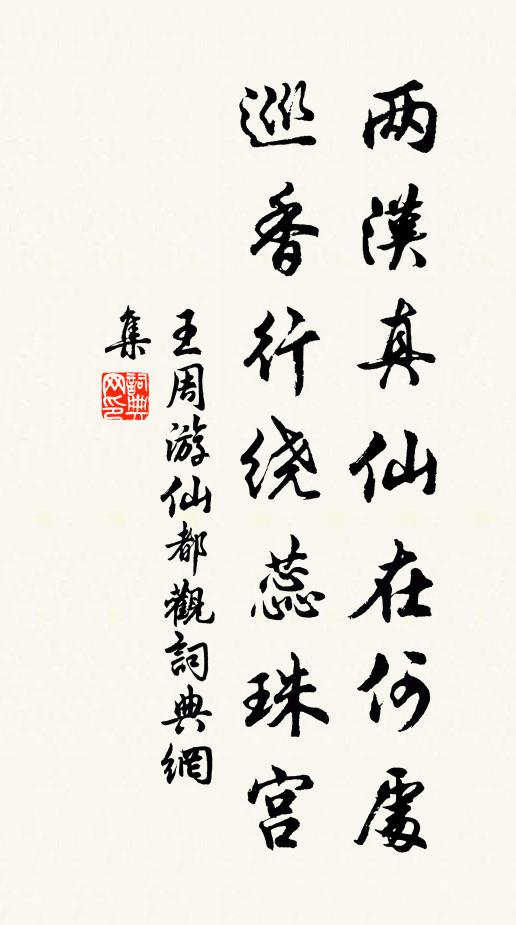 两漢真仙在何處
巡香行绕蕊珠宫
王周游仙都觀詞典網
集
詞典网印